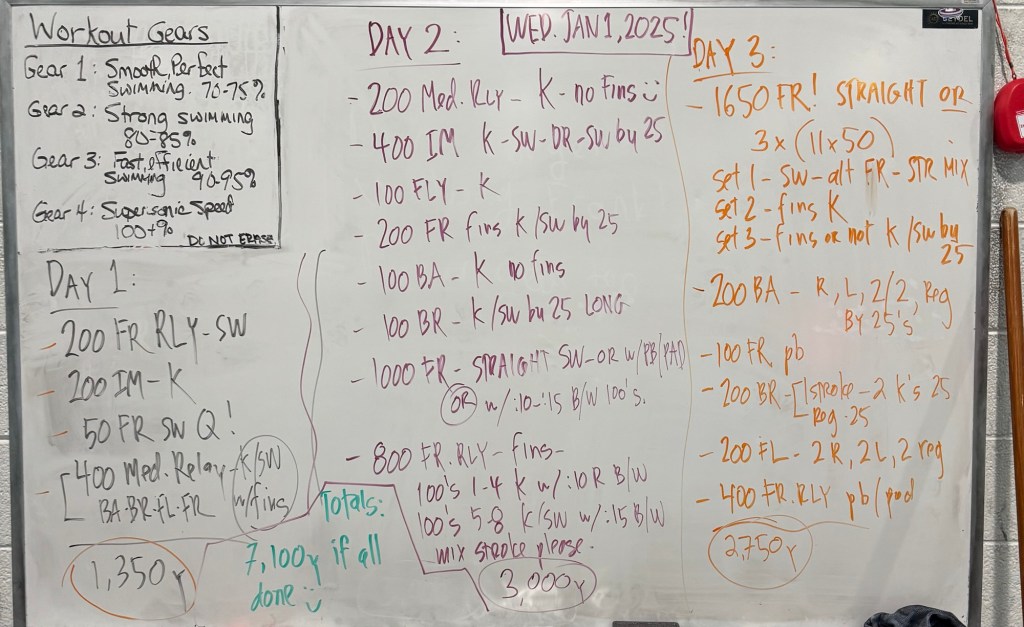 Workout Gears
Gear 1: Smooth, Perfect
Swimming. 70-75%
Gear 2: Strong swimming
80-85%
Gear 3: Fast, efficient
swimming 90-95%
Gear 4: Supersonic Speed
100+%
DO NOT ERASE
DAY 1:
- 200 FR RLY-SW
- 200 IM-K
- 50 FR SW Q!
- 400 Med. Relay-K/SW
BA-BR-FL-FR w/fins
1,350y
Totals:
7,100y if all
done
WED. JAN 1, 2025!
DAY 2:
- 200 Med. RLY - K - no fins
- 400 IM K-SW-DR-SW by 25
- 100 FLY - K
- 200 FR fins K/SW by 25
- 100 BA - K no fins
- 100 BR - K/SW by 25 LONG
- 1000 FR - STRAIGHT SW-OR w/PB/PAD
OR w/:10-:15 B/W 100's.
- 800 FR. RLY - fins-
100's 1-4 K w/:10R B/W
100's 5-8 K/SW w/:15 B/W
mix stroke please.
3,000y
DAY 3:
- 1650 FR! STRAIGHT OR
3 x (11x50)
set 1 - SW-alt FR-STR MIX
set 2 - fins K
set 3 - fins or not K/SW by
25
- 200 BA - R, L, 2/2, Reg
BY 25's
- 100 FR pb
- 200 BR - [1 stroke - 2 K's 25
Reg - 25
- 200 FL - 2R, 2L, 2 reg
- 400 FR. RLY pb/pad
2,750y